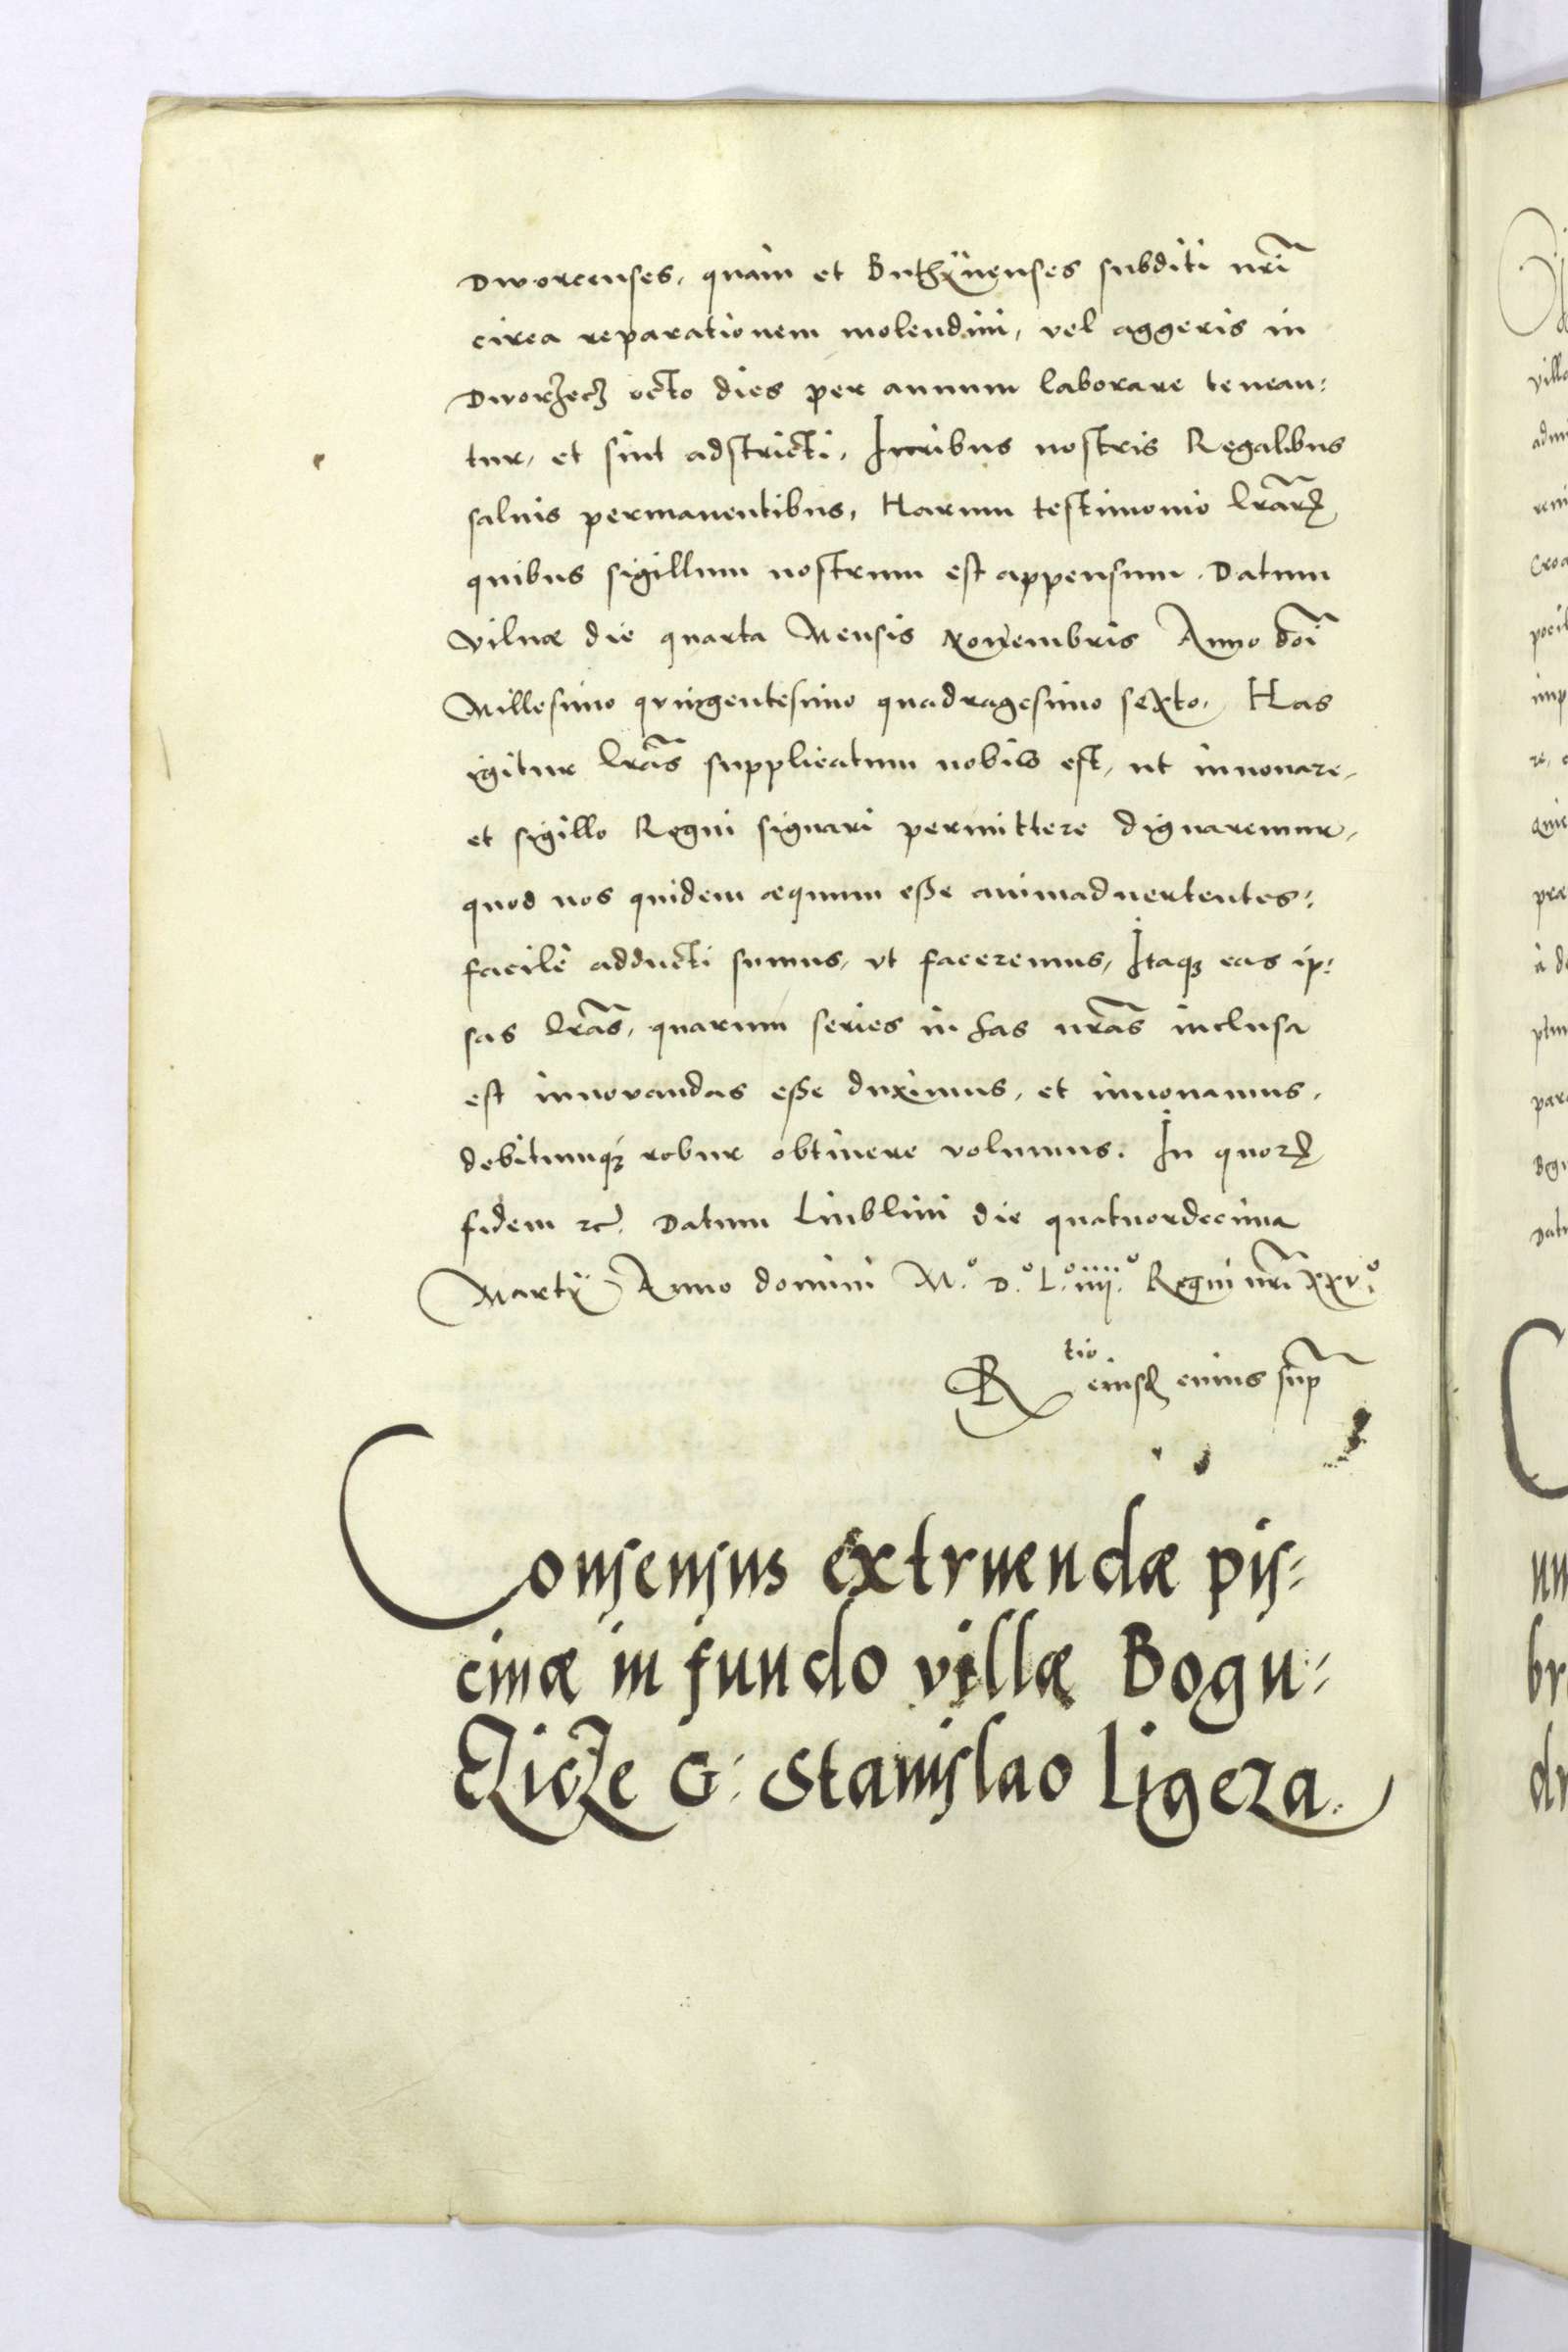 Dworcenses, quàm et Buthÿnenses subditi nr̃i
circa reparationem molendini, vel aggeris in
Dworzecz octo dies per annum laborare tenean:
tur, et sint adstricti, Iuribus nostris Regalibus
saluis permanentibus, Harum testimonio lr̃arꝝ
quibus sigillum nostrum est appensum. Datum
Vilnæ die quarta Mensis Nouembris Anno dñi
Millesimo quingentesimo quadragesimo sexto. Has
igitur lr̃as supplicatum nobis est, ut innouare,
et sigillo Regni signari permittere dignaremur,
quod nos quidem æquum esse animaduertentes:
facilè adducti sumus, vt faceremus, Itaqꝫ eas ip:
sas lr̃as, quarum series in has nr̃as inclusa
est innovandas esse duximus, et innouamus,
debitumqꝫ robur obtinere volumus. In quorꝝ
fidem ꝛc̃. Datum Liublini die quatuordecima
Martÿ Anno domini M.º D.º L.º iiij.º Regni nr̃i xxv.º
R tio eiusꝺ cuius sup̃
Consensus extruendæ pis:
cinæ in fundo villæ Bogu:
czicze G: Stanislao Ligeza.
villa